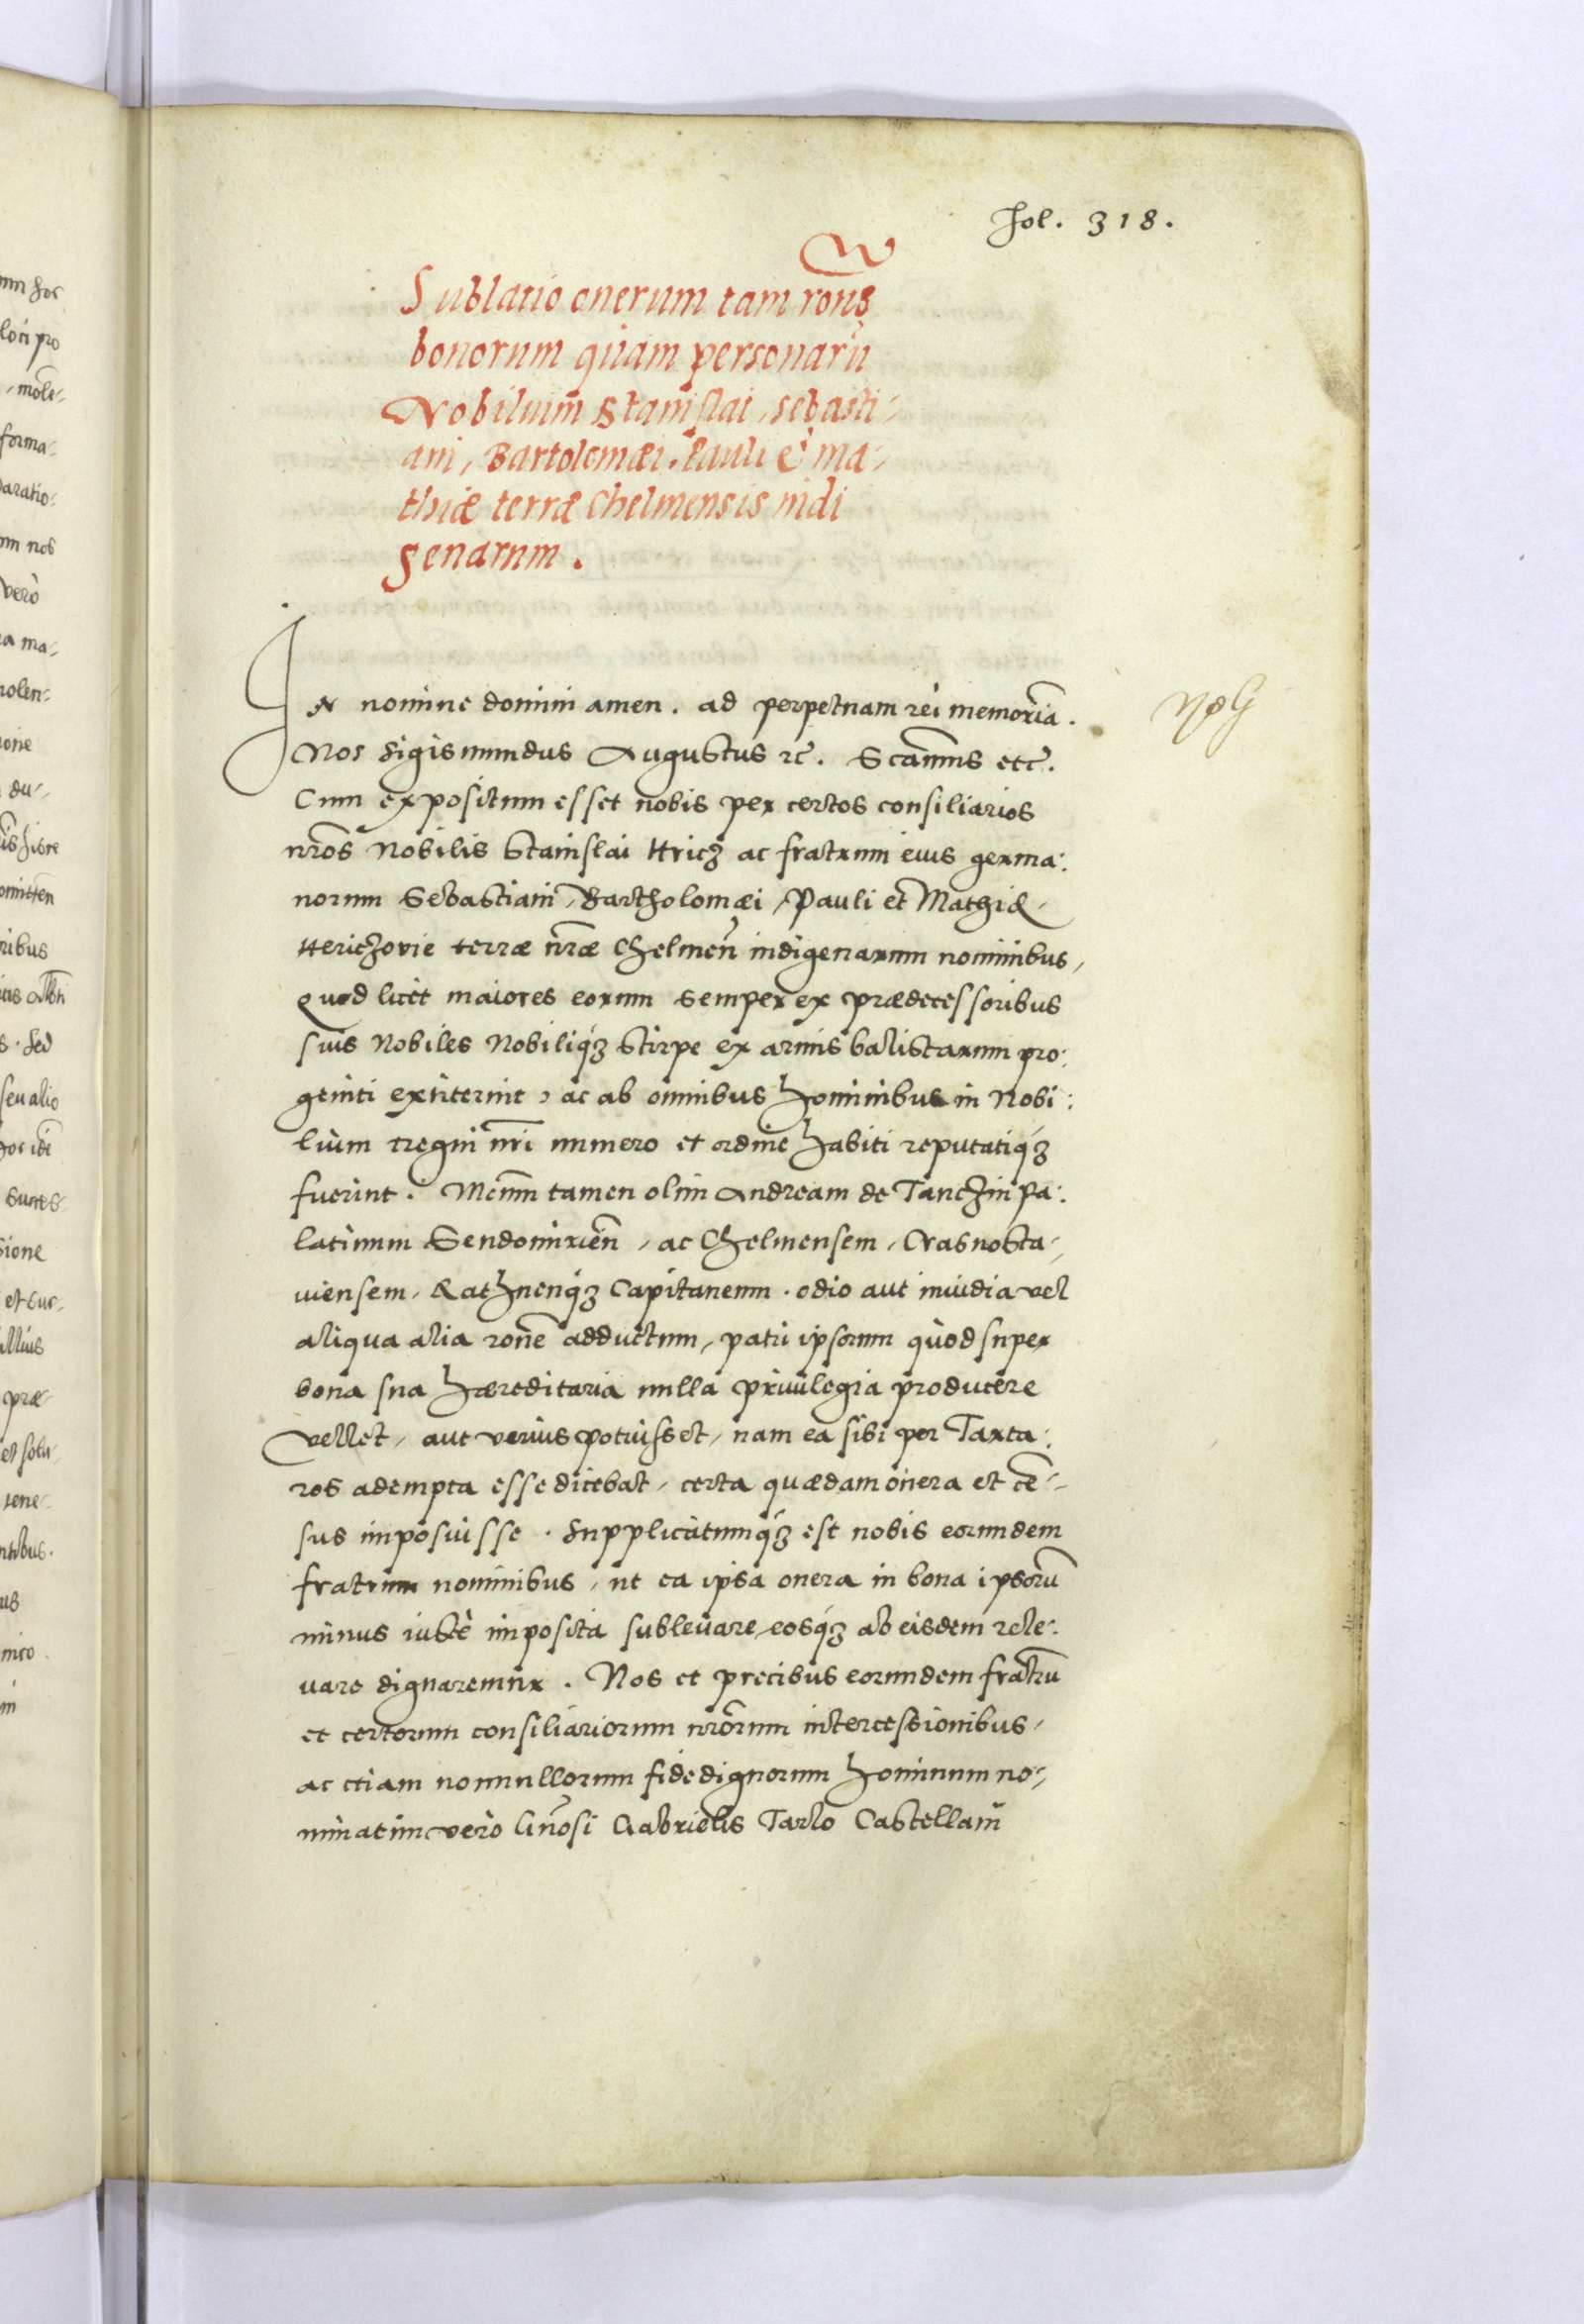 fol. 318.
Sublatio onerum tam ronē
bonorum quam personarū
Nobilium Stanislai, Sebasti-
ani, Bartolomæi, Pauli et Ma-
thiæ terræ Chelmensis indi
genarum.
In nomine domini amen. ad perpetuam rei memoriā.
Nos Sigismundus Augustus rc̄. Scāmus etc̄.
Cum expositum esset nobis per certos consiliarios
nr̄os Nobilis Stanislai Hricz ac fratrum eius germa:
norum Sebastiani, Bartholomæi, Pauli et Mathiæ,
Herichovie terræ nr̄æ Chelmen̄ indigenarum nominibus,
Quod licet maiores eorum semper ex prædecessoribus
suis Nobiles Nobiliq́ʒ stirpe ex armis balistarum pro:
geniti extiterint, ac ab omnibus hominibus in Nobi:
lium regni nr̄i numero et ordine habiti reputatiq́ʒ
fuerint. Mcūm tamen olim Andream de Tanczin Pa:
latinum Sendomirien̄, ac Chelmensem, Crasnosta-
uiensem, Rathnenq́ʒ Capitaneum. odio aut inuidia vel
aliqua alia ronē adductum, patri ipsorum quod super
bona sua hæreditaria nulla priuilegia producere
vellet, aut verius potuisset, nam ea sibi per Tarta:
ros adempta esse dicebat, certa quædam onera et cē-
sus imposuisse. Supplicatumq́ʒ est nobis eorundem
fratrum nominibus, ut ea ipsa onera in bona ipsorū
minus iustè imposita subleuare, eosq́ʒ ab eisdem rele:
uare dignaremur. Nos et precibus eorundem fratrū
et certorum consiliariorum nr̄orum intercessionibus,
ac etiam nonnullorum fide dignorum hominum no-
minatim vero Gn̄osi Gabrielis Tarlo Castellani